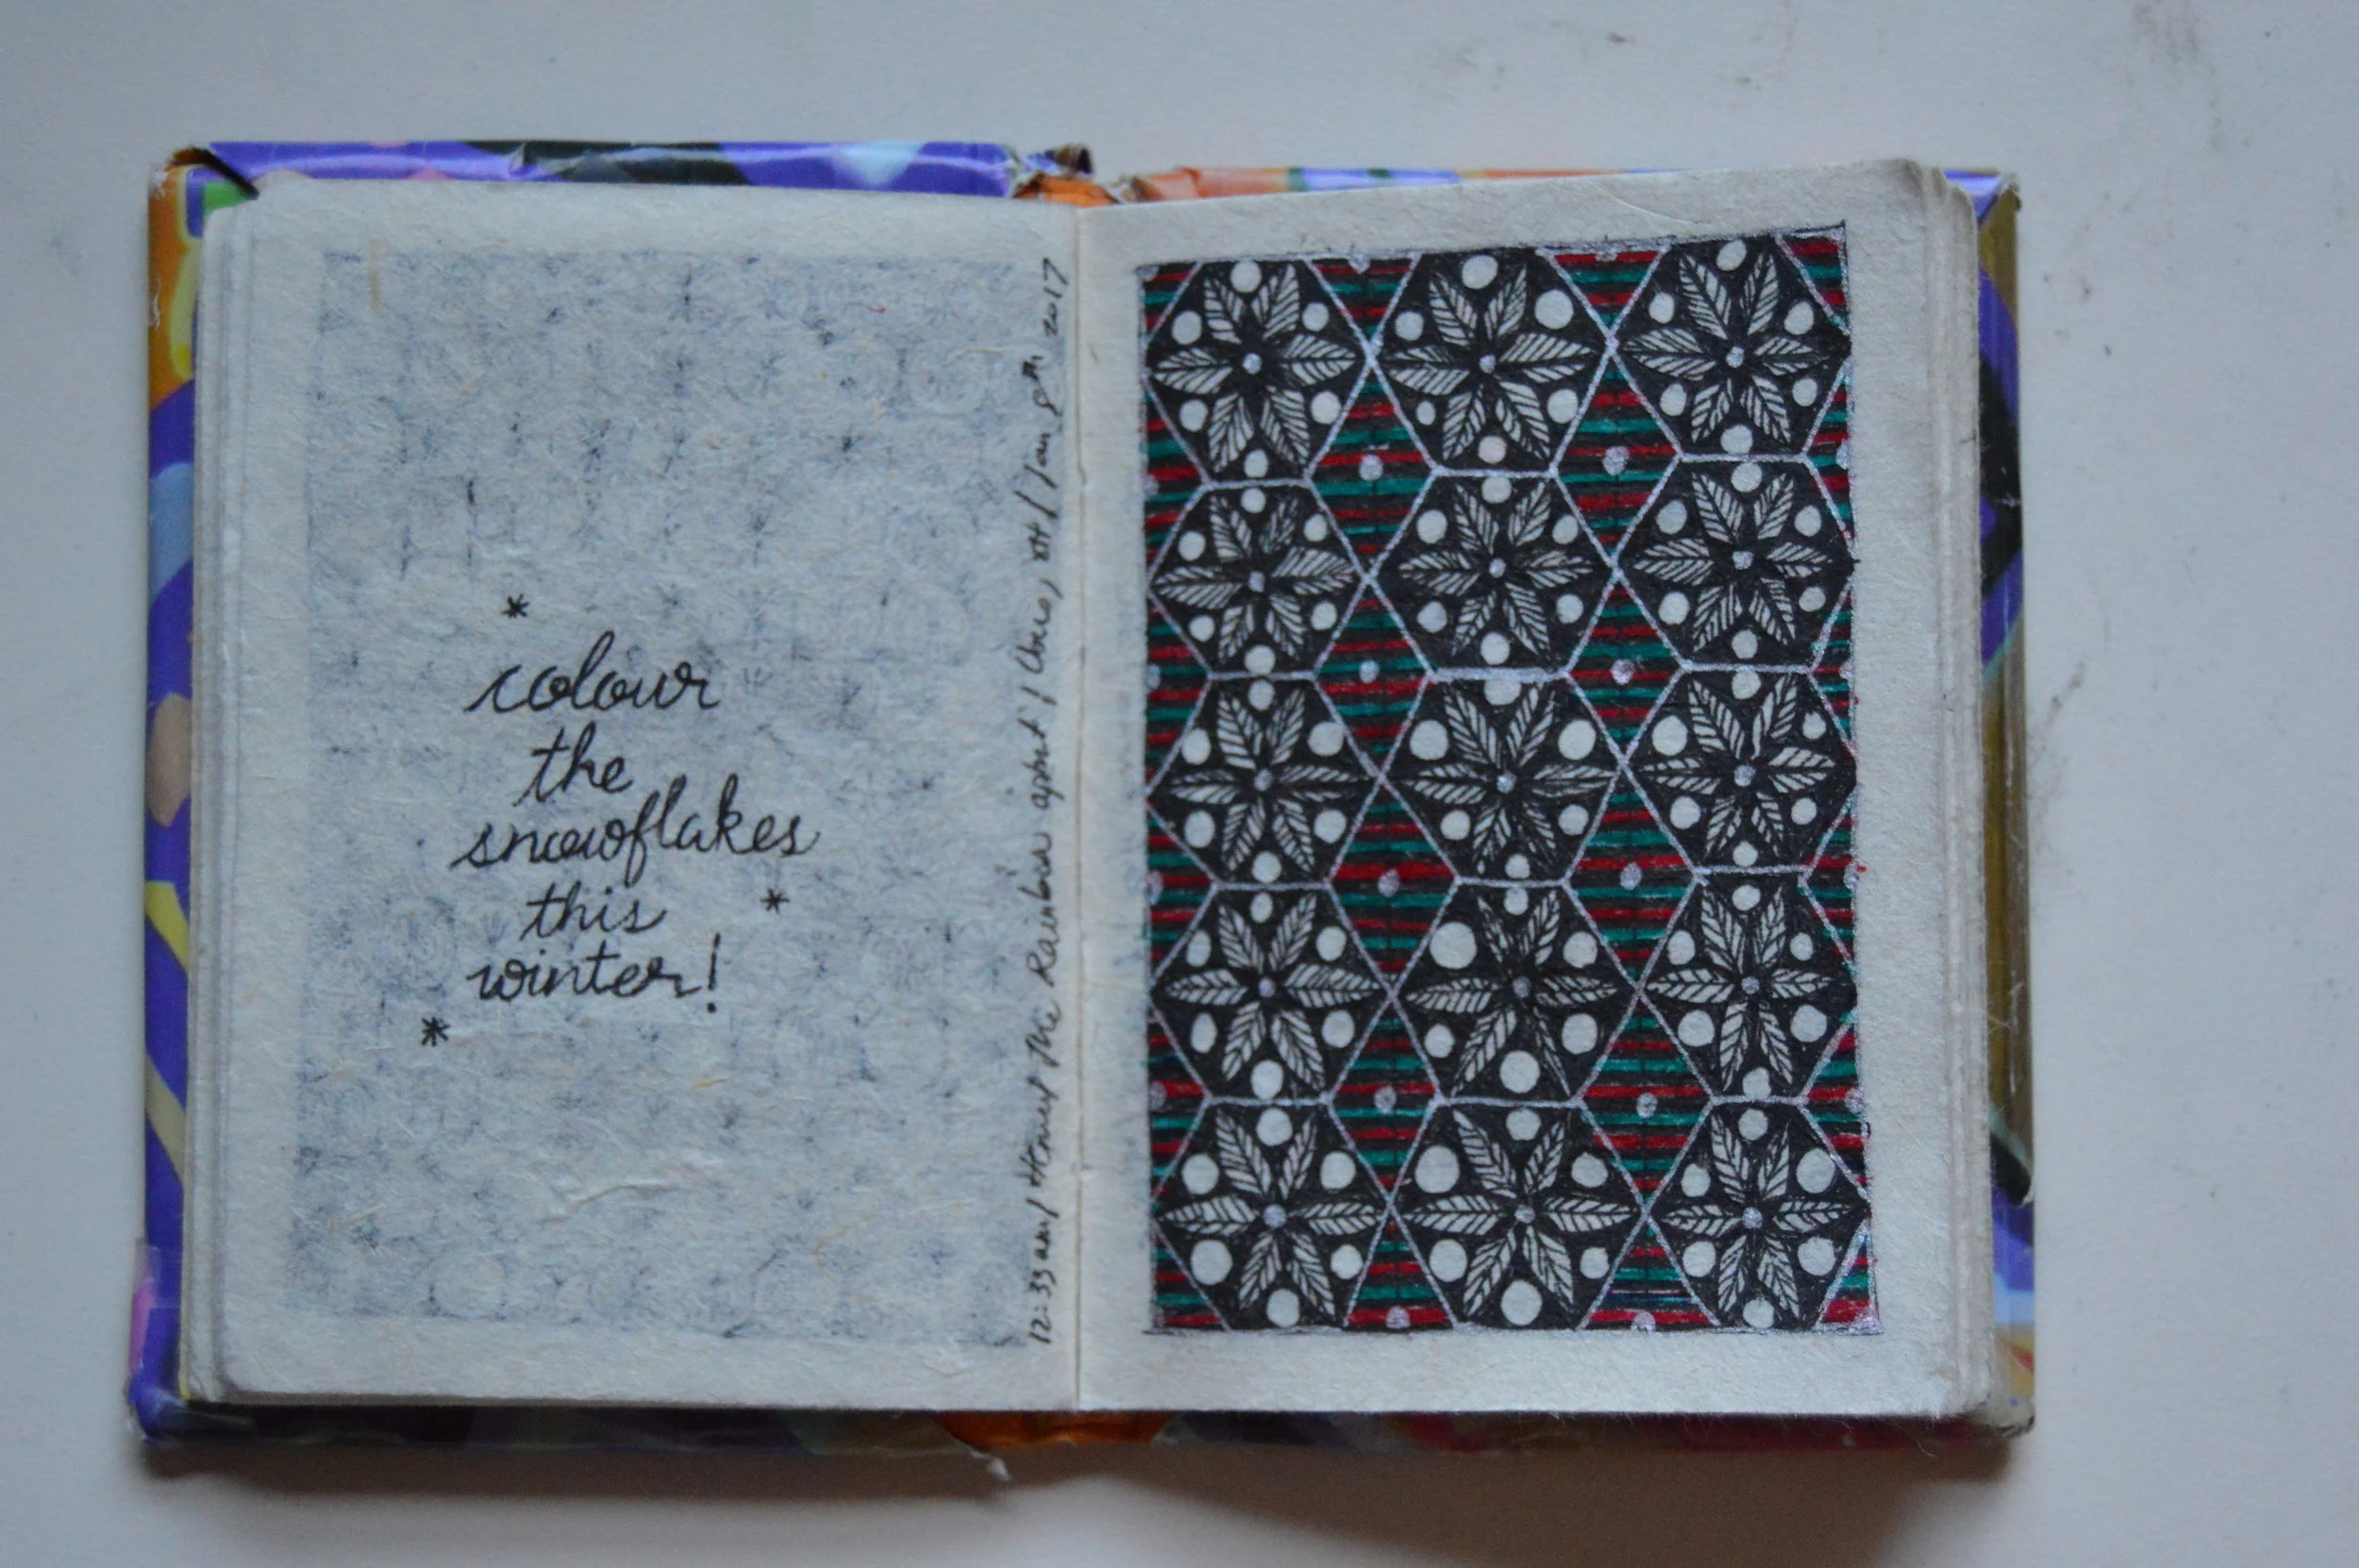 colour
the
snowflakes
this
winter!
12:33 am / Honey The Rainbow / Jan 8th, 2017